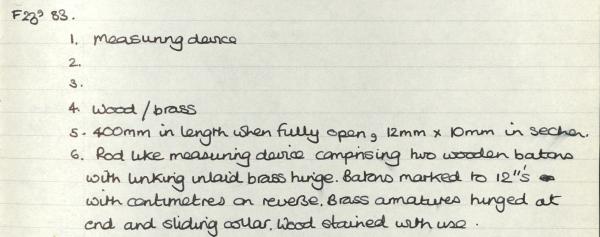 F23⁹ 83.
1. Measuring device
2.
3.
4. Wood / brass
5. 400mm in length when fully open, 12mm x 10mm in section.
6. Rod like measuring device comprising two wooden batons
with linking inlaid brass hinge. Batons marked to 12"s
with centimetres on reverse. Brass armatures hinged at
end and sliding collar. Wood stained with use.